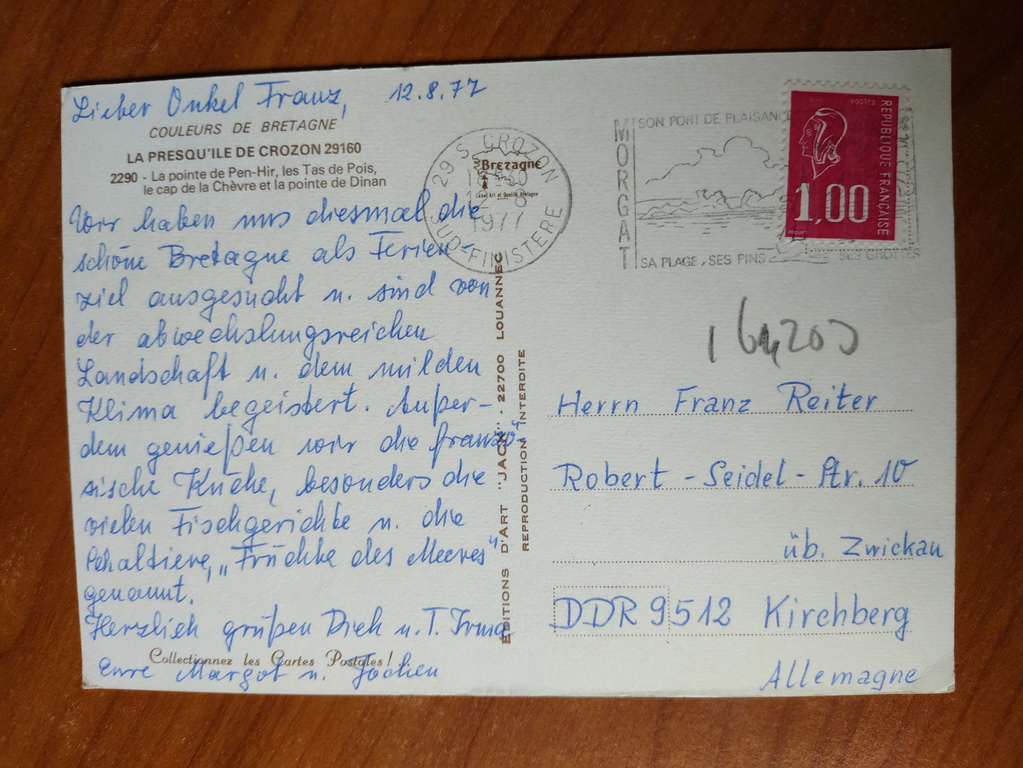 Lieber Onkel Franz, 12.8.77
COULEURS DE BRETAGNE
LA PRESQU'ILE DE CROZON 29160
2290 - La pointe de Pen-Hir, les Tas de Pois,
le cap de la Chèvre et la pointe de Dinan
Wir haben uns diesmal die
schöne Bretagne als Ferien-
ziel ausgesucht u. sind von
der abwechslungsreichen
Landschaft u. dem milden
Klima begeistert. Außer-
dem genießen wir die franzö-
sische Küche, besonders die
vielen Fischgerichte u. die
Schaltiere, „Früchte des Meeres"
genannt.
Herzlich grüßen Dich u. T. Irma
Collectionnez les Cartes Postales!
Eure Margot u. Jochen
ÉDITIONS D'ART "JACK" - 22700 LOUANNEC
REPRODUCTION INTERDITE
Bretagne
29 S. CROZON
1977
SUD-FINISTERE
MORGAT
SON PORT DE PLAISANCE
SA PLAGE, SES PINS
SES GROTTES
POSTES
REPUBLIQUE FRANÇAISE
1,00
Herrn Franz Reiter
Robert-Seidel-Str. 10
üb. Zwickau
DDR 9512 Kirchberg
Allemagne